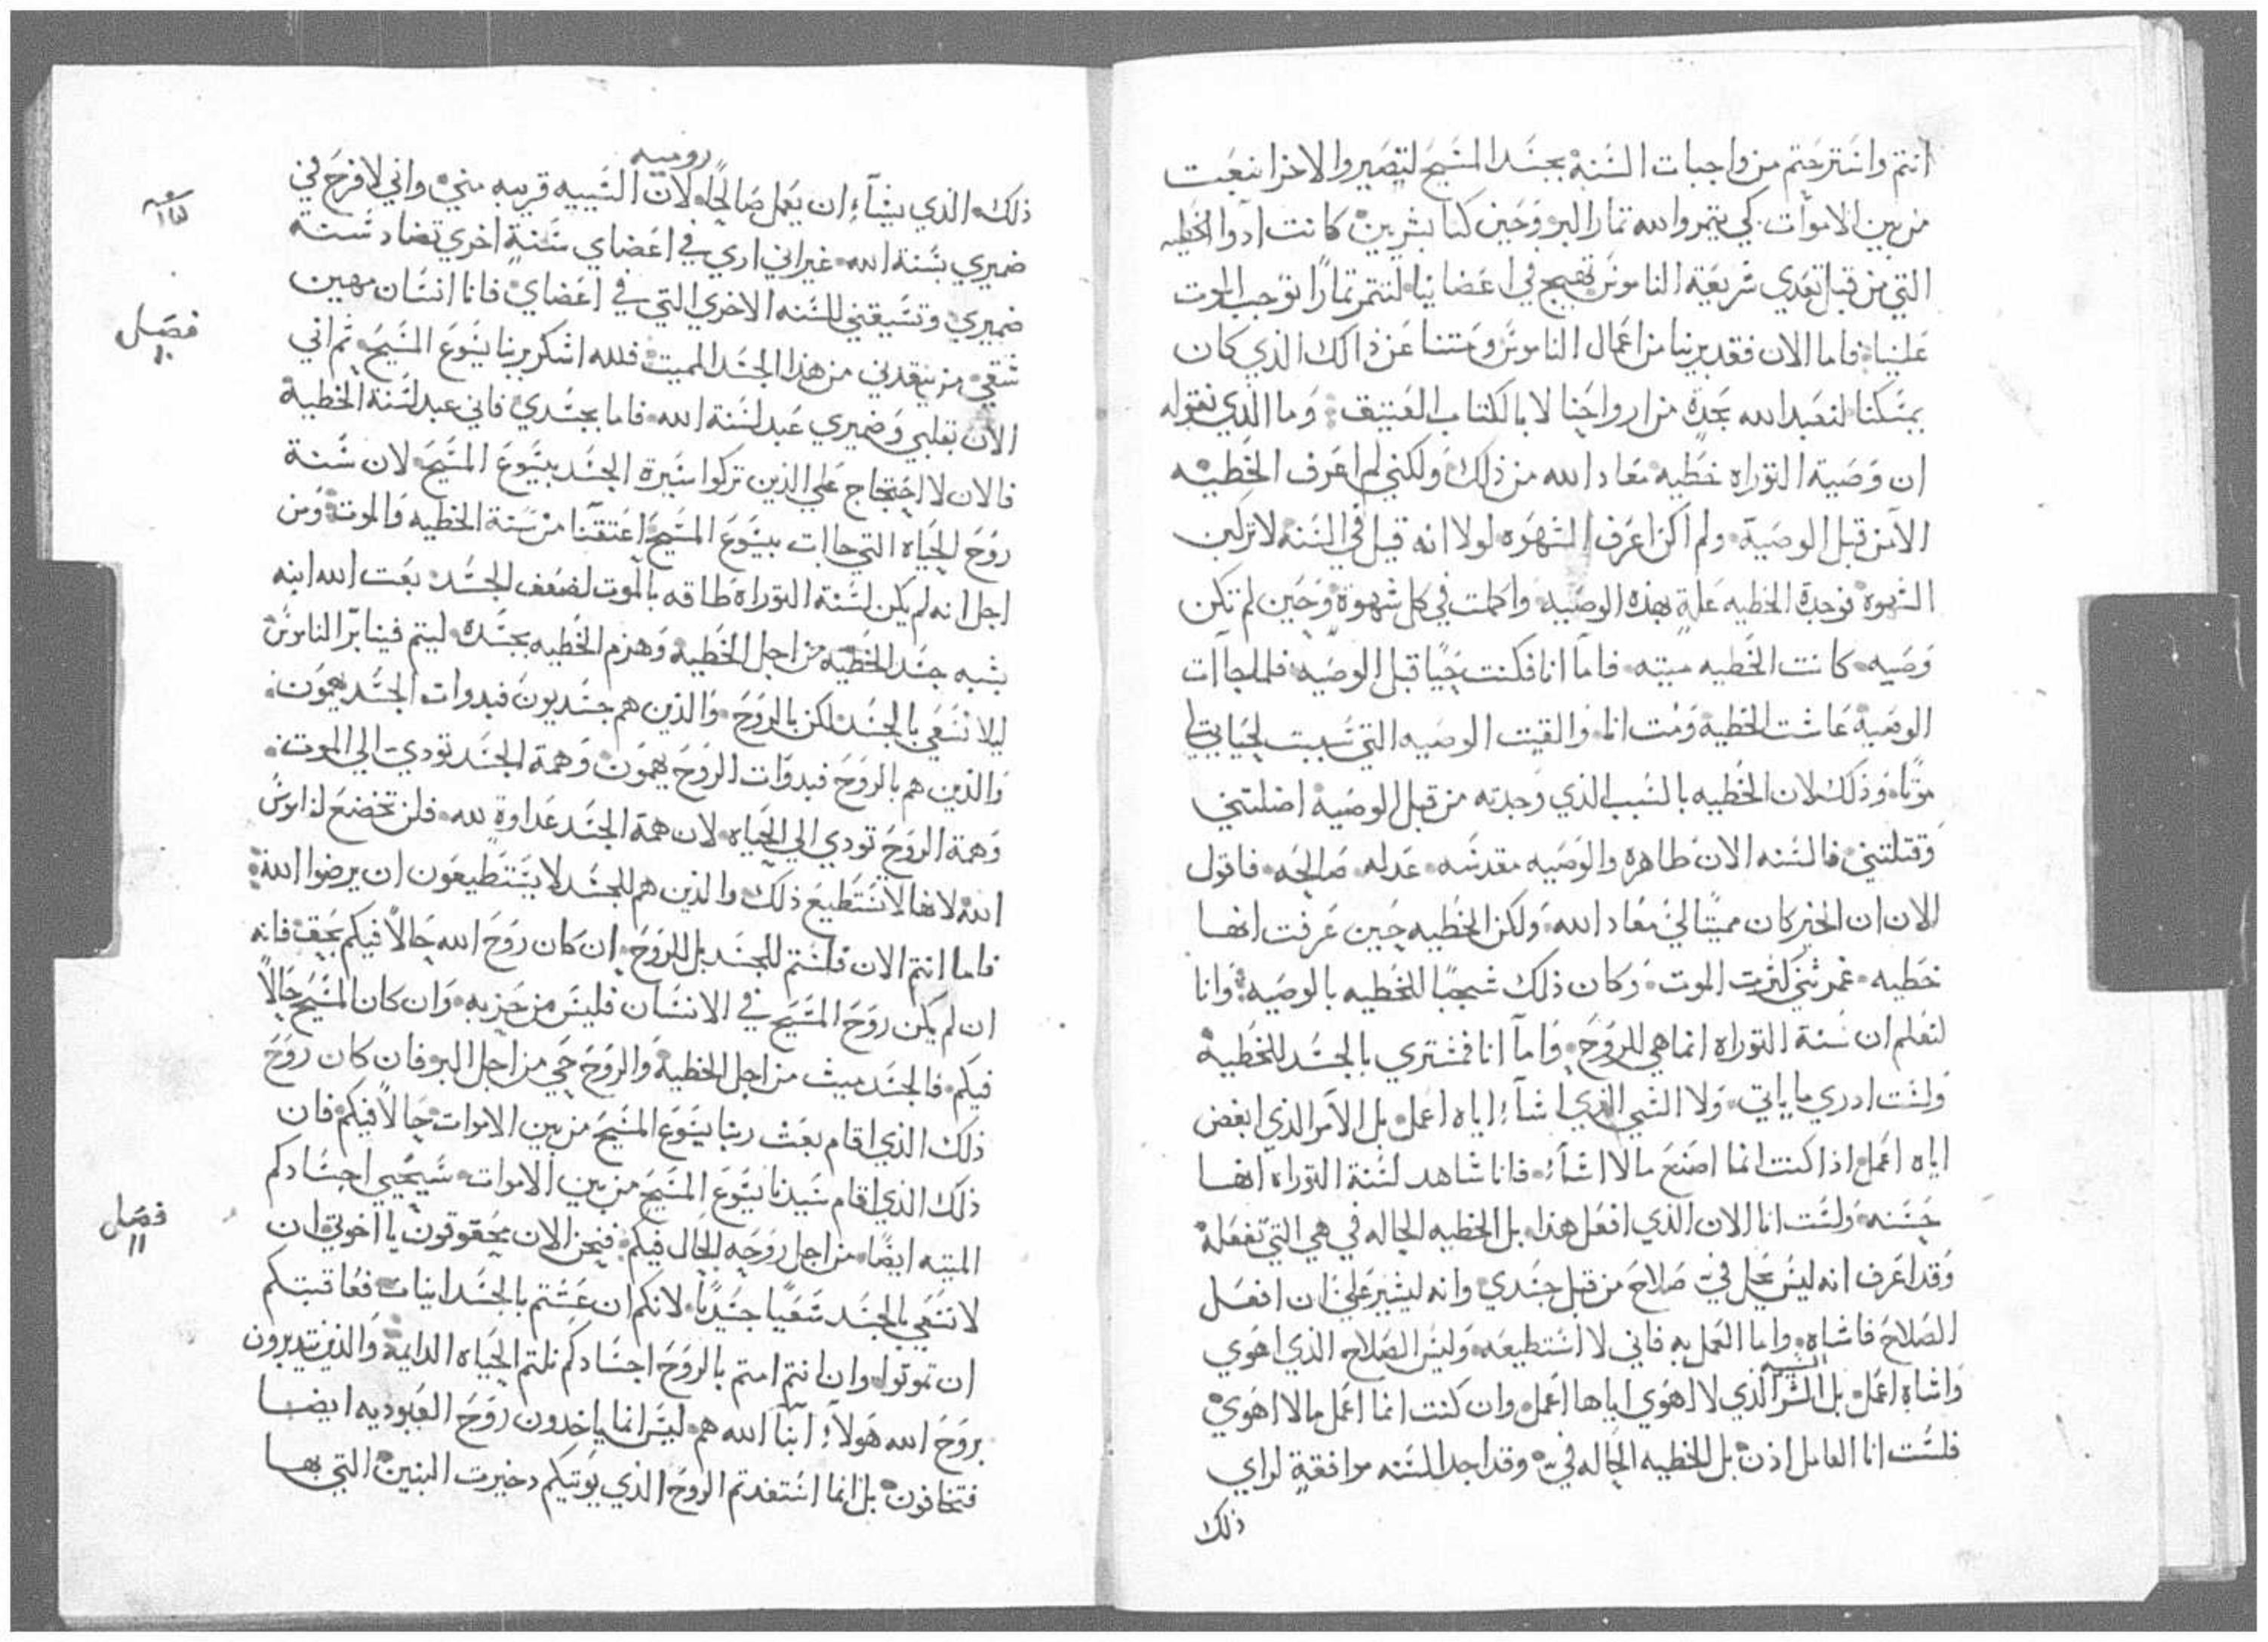 انتم واسترحتم من واجبات السنة بجسد المسيح لتصيروا لاخر انبعث
من بين الاموات كي يتمروا لله تمار البر وحين كنا بشريين كانت ادوا الخطيه
التي من قبل تعدي شريعة الناموس تهيج في اعضاينا لنتمر تمارًا توجب الموت
علينا فاما الان فقد برينا من اعمال الناموس ومتنا عن ذالك الذي كان
يمسكنا لنعبد الله بجدة من ارواحنا لا بالكتاب العتيق وما الذي نقوله
ان وصية التوراه خطيه معاد الله من ذلك ولكني لم اعرف الخطيه
الا من قبل الوصية ولم اكن اعرف الشهوه لولا انه قيل في السنه لا تركبن
الشهوة فوجدة الخطيه علةٍ بهذه الوصيه واكملت في كل شهوة وحين لم تكن
وصيه كانت الخطيه ميته فاما انا فكنت حيًا قبل الوصيه فلما جاات
الوصية عاشت الخطية ومت انا والفيت الوصيه التي سببت لحياتي
موتًا وذلك لان الخطيه بالسبب الذي وجدته من قبل الوصية اضلتني
وقتلتني فالسنه الان طاهره والوصيه مقدسه عدله صالحه فاقول
الان ان الخير كان مميتًا لي معاد الله ولكن الخطيه حين عرفت انها
خطيه كثرت الموت وكان ذلك للخطيه بالوصيه وانا
لنعلم ان سنة التوراه انما هي للروح واما انا فمشتري بالجسد للخطية
ولست ادري ما ياتي ولا الشي الذي اشاء اياه اعمل بل الامر الذي ابغض
اياه اعمل اذا كنت انما اصنع ما لا اشاء فانا شاهد لسنة التوراه انها
حسنه ولست انا الان الذي افعل هذا بل الخطيه الحاله في هي التي تفعله
وقد اعرف انه ليس يحل في صلاح من قبل جسدي وانه ليسير علي ان افعل
الصلاح فاشاه واما العمل به فاني لا استطيعه وليس الصلاح الذي اهوي
واشاه اعمل بل الشر الذي لا اهوي اياها اعمل وان كنت انما اعمل ما لا اهوي
فلست انا العامل اذن بل الخطيه الحاله في وقد اجد السنه موافقةٍ لراي
ذلك
روميه
ذلك الذي يشاء ان يعمل صالحًا لان السيه قريبه مني واني لافرح في
ضميري بسنة الله غير اني اري في اعضاي سنةٍ اخري تضاد سنة
ضميري وتسيقني للسنه الاخري التي في اعضاي فانا انسان مهين
شقي من ينقدني من هذا الجسد المميت فلله اشكر بربنا يسوع المسيح ثم اني
فصل
١٠
الان بقلبي وضميري عبد لسنة الله فاما بجسدي فاني عبد لسنة الخطية
فالان لا احتجاج علي الذين تركوا سيرة الجسد بيسوع المسيح لان سنة
روح الحياه التي جاات بيسوع المسيح اعتقتنا من سنة الخطيه والموت ومن
اجل انه لم يكن لسنة التوراة طاقه بالموت لضعف الجسد بعت الله ابنه
بشبه جسد الخطيه من اجل الخطية وهزم الخطيه بجسده ليتم فينا برّ الناموس
ليلا نسعي بالجسد لكن بالروح والذين هم جسديون فبدوات الجسد يهمون
والذين هم بالروح فبدوات الروح يهمون وهمة الجسد تودي الي الموت
وهمة الروح تودي الي الحياه لان همة الجسد عداوةٍ لله فلن تخضع لناموس
الله لانها لا تستطيع ذلك والذين هم للجسد لا يستطيعون ان يرضوا الله
فاما انتم الان فلستم للجسد بل للروح ان كان روح الله حالًا فيكم بحق فانه
ان لم يكن روح المسيح في الانسان فليس من حزبه وان كان المسيح حالًا
فيكم فالجسد ميت من اجل الخطية والروح حي من اجل البر وفان كان روح
ذلك الذي اقام بعث ربنا يسوع المسيح من بين الاموات حالًا فيكم فان
ذلك الذي اقام سيدنا يسوع المسيح من بين الاموات سيحيي اجسادكم
الميته ايضًا من اجل روحه الحال فيكم فنحن الان يحقوقون يا اخوتي ان
فصل
١١
لا نسعي بالجسد سعيًا جسديًا لانكم ان عشتم بالجسدانيات فعاقبتكم
ان تموتوا وان انتم امتم بالروح اجسادكم نلتم الحياه الدايمة والذين يتدبرون
بروح الله هولاء ابنا الله هم ليس انما ياخدون روح العبوديه ايضا
فتخافون بل انما استفدتم الروح الذي يوتيكم دخيرت البنين التي بها